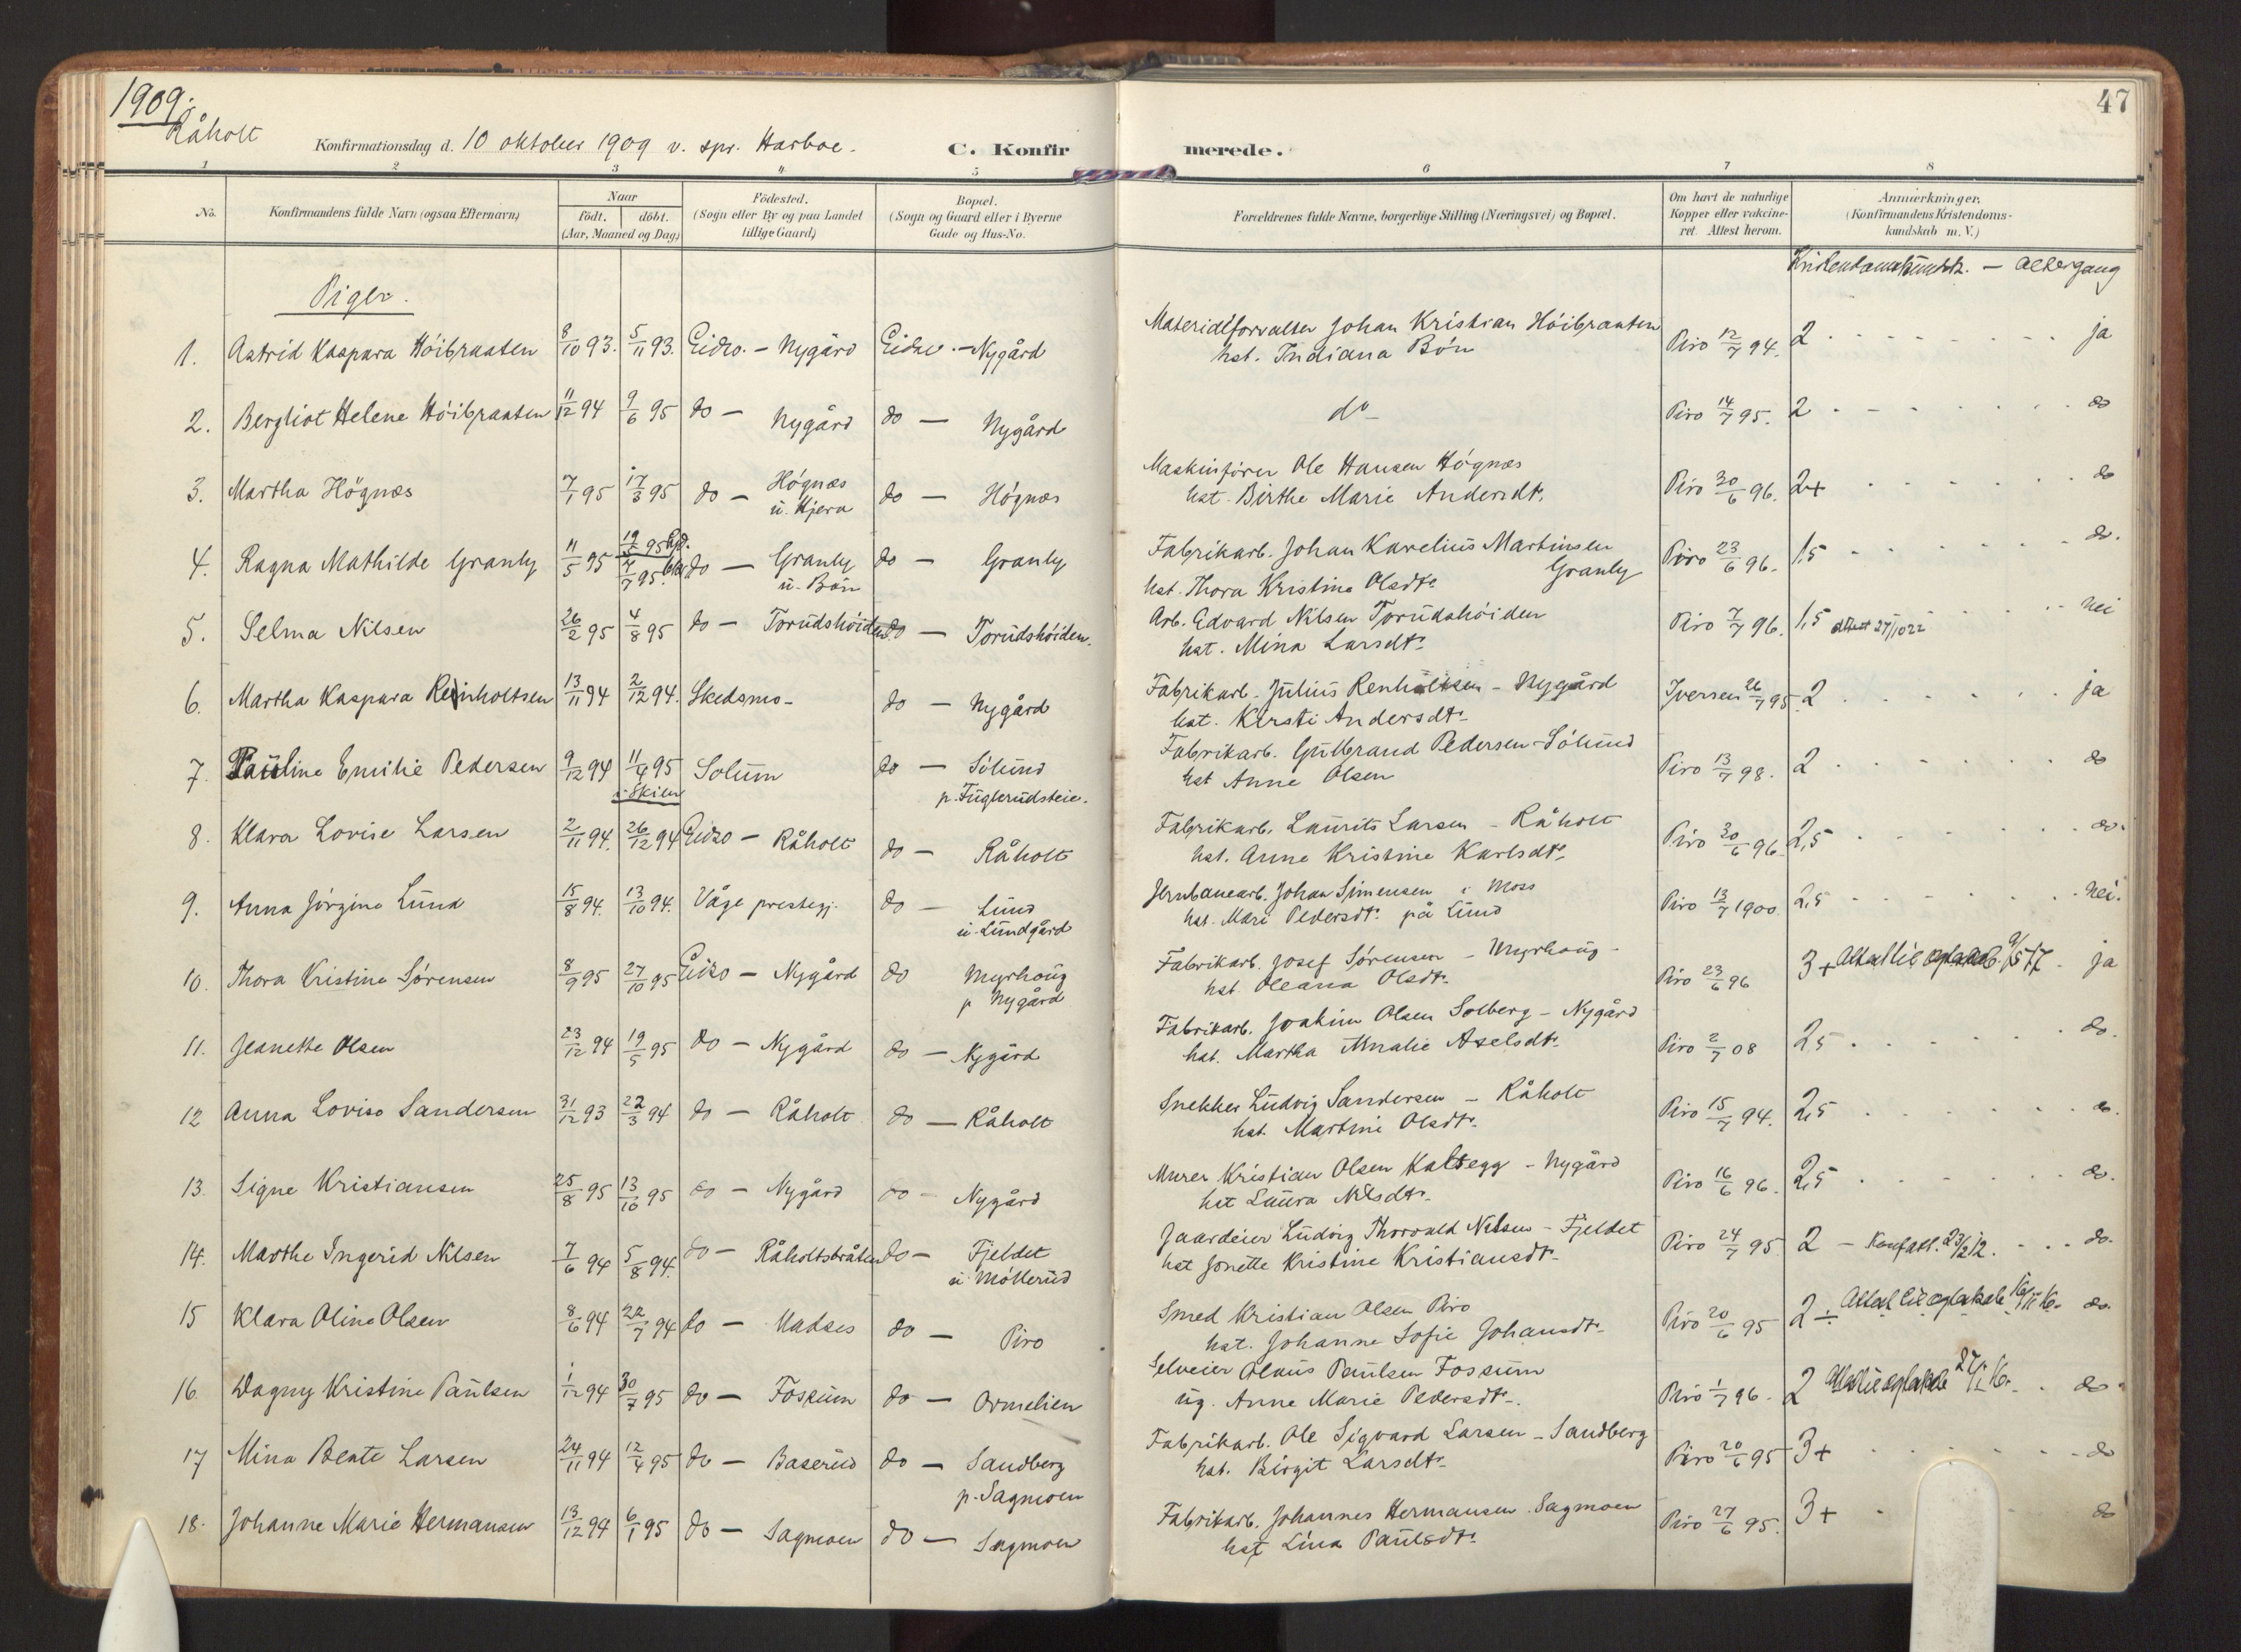 1909.
Råholt
Konfirmationsdag d. 10 oktober 1909 v. spr. Harboe.
C. Konfirmerede.
47
1 2 3 4 5 6 7 8
No.
Konfirmandens fulde Navn (ogsaa Efternavn)
Naar
födt. döbt.
(Aar, Maaned og Dag)
Födested.
(Sogn eller By og paa Landet
tillige Gaard)
Bopæl.
(Sogn og Gaard eller i Byerne
Gade og Hus-No.
Forældrenes fulde Navne, borgerlige Stilling (Næringsvei) og Bopæl.
Om havt de naturlige
Kopper eller vakcine-
ret. Attest herom.
Anmærkninger.
(Konfirmandens Kristendoms-
kundskab m. V.)
Kristendomskundsk. — Altergang
Piger.
1. Astrid Kaspara Höibraaten 8/10 93. 5/11 93. Eidsv. - Nygård Eidsv. - Nygård
Materialforvalter Johan Kristian Höibraaten
hst. Indiana Bön
Piro 12/7 94. 2 ja
2. Bergliot Helene Höibraaten 11/12 94 9/6 95 do - Nygård do - Nygård
do
Piro 14/7 95. 2 do
3. Martha Högnæs 7/1 95 17/3 95 do - Högnæs
u. Hjera
do - Högnæs
Maskinförer Ole Hansen Högnæs
hst. Birthe Marie Andersdt.
Piro 30/6 96. 2+ do
4. Ragna Mathilde Granly 11/5 95 19/5 95 hjd.
7/7 95. bkr.
do - Granly
u. Bön
do - Granly
Fabrikarb. Johan Karelius Martinsen
Granly
hst. Thora Kristine Olsdt.
Piro 23/6 96. 1,5 do.
5. Selma Nilsen 26/2 95 4/8 95 do - Torudshöiden do - Torudshöiden.
Arb. Edvard Nilsen Torudshöiden
hst. Mina Larsdt.
Piro 7/7 96. 1,5 attest 27/10 22 nei
6. Martha Kaspara Reinholtsen 13/11 94 2/12 94. Skedsmo - do - Nygård
Fabrikarb. Julius Renholtsen - Nygård
hst. Kersti Andersdt.
Iversen 26/7 95. 2 ja
7. Pauline Emilie Pedersen 9/12 94 11/4 95
i Skien
Solum do - Sölund
p. Fuglerudsteie.
Fabrikarb. Gulbrand Pedersen - Sölund
hst Anne Olsen
Piro 13/7 98. 2 do
8. Klara Lovise Larsen 2/11 94. 26/12 94 Eidsv - Råholt do - Råholt
Fabrikarb. Laurits Larsen - Råholt
hst. Anne Kristine Karlsdt.
Piro 30/6 96. 2,5 do.
9. Anna Jörgine Lund 15/8 94. 13/10 94. Våge prestegj. do - Lund
u. Lundgård
Jernbanearb. Johan Simensen i Moss
hst. Mari Pedersdt. på Lund
Piro 13/7 1900 2,5 nei.
10. Thora Kristine Sörensen 8/9 95 27/10 95 Eidsv - Nygård do Myrhoug
p Nygård
Fabrikarb. Josef Sörensen - Myrhoug -
hst. Oleana Olsdt.
Piro 23/6 96 3+ ja
11. Jeanette Olsen 23/12 94 19/5 95 do - Nygård do - Nygård
Fabrikarb. Joakim Olsen Solberg - Nygård
hst. Martha Amalie Axelsdt.
Piro 2/7 08 2,5 do.
12 Anna Lovise Sandersen 31/12 93 22/3 94 do - Råholt do - Råholt
Snekker Ludvig Sandersen - Råholt
hst. Martine Olsdt.
Piro 15/7 94. 2,5 do.
13. Signe Kristiansen 25/8 95 13/10 95 do - Nygård do - Nygård
Murer Kristian Olsen Kalsegg - Nygård
hst Laura Nilsdt.
Piro 16/6 96. 2,5 do.
14. Marthe Ingerid Nilsen 7/6 94 5/8 94. do - Råholtsbråten do - Fjeldet
u. Möllerud
Gaardeier Ludvig Thorvald Nilsen - Fjeldet
hst Jonette Kristine Kristiansdt.
Piro 24/7 95. 2 - Konfatt. 23/2 12. do.
15 Klara Oline Olsen 8/6 94 22/7 94 do - Hadses do - Piro
Smed Kristian Olsen Piro
hst. Johanne Sofie Johansdt.
Piro 20/6 95 2 ÷ do.
16. Dagny Kristine Paulsen 1/12 94 30/7 95 do - Fossum do - Ormelien
Selveier Olaus Paulsen Fossum
ug. Anne Marie Pedersdt.
Piro 1/7 96. 2 do.
17 Mina Beate Larsen 24/11 94 12/4 95 do - Baserud do - Sandberg
p. Sagmoen
Fabrikarb. Ole Sigvard Larsen - Sandberg
hst. Birgit Larsdt.
Piro 20/6 95 3+ do
18. Johanne Marie Hermansen 13/12 94 6/1 95 do - Sagmoen do - Sagmoen
Fabrikarb. Johannes Hermansen Sagmoen
hst Lina Paulsdt.
Piro 27/6 95. 3+ do